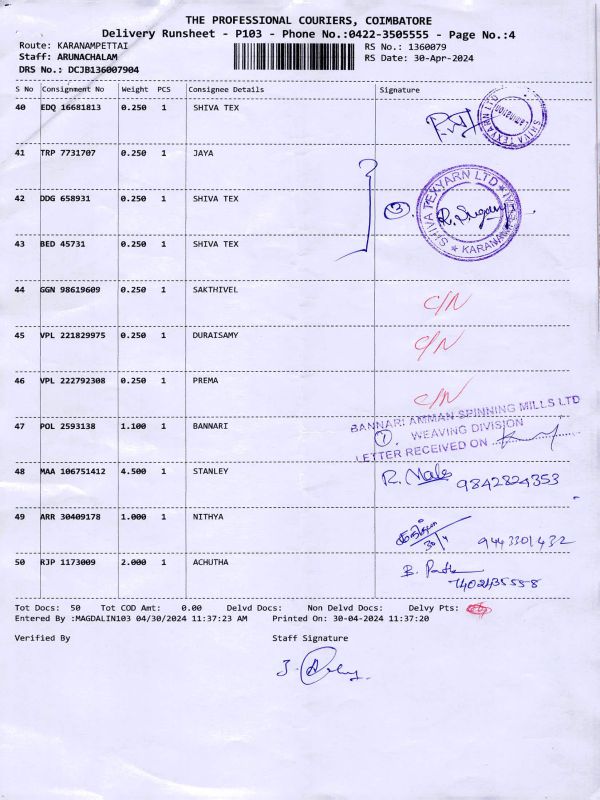 THE PROFESSIONAL COURIERS, COIMBATORE
Delivery Runsheet - P103 - Phone No.:0422-3505555 - Page No.:4
Route: KARANAMPETTAI RS No.: 1360079
Staff: ARUNACHALAM RS Date: 30-Apr-2024
DRS No.: DCJB136007904
S No Consignment No Weight PCS Consignee Details Signature
40 EDQ 16681813 0.250 1 SHIVA TEX
SHIVA TEXYARN LTD
41 TRP 7731707 0.250 1 JAYA
SHIVA TEXYARN LTD
42 DDG 658931 0.250 1 SHIVA TEX
3
43 BED 45731 0.250 1 SHIVA TEX
44 GGN 98619609 0.250 1 SAKTHIVEL C/N
45 VPL 221829975 0.250 1 DURAISAMY C/N
46 VPL 222792308 0.250 1 PREMA C/N
BANNARI AMMAN SPINNING MILLS LTD
47 POL 2593138 1.100 1 BANNARI
1. WEAVING DIVISION
LETTER RECEIVED ON
48 MAA 106751412 4.500 1 STANLEY 9842824353
49 ARR 30409178 1.000 1 NITHYA 30/4 9443301432
50 RJP 1173009 2.000 1 ACHUTHA
Tot Docs: 50 Tot COD Amt: 0.00 Delvd Docs: Non Delvd Docs: Delvy Pts:
Entered By :MAGDALIN103 04/30/2024 11:37:23 AM Printed On: 30-04-2024 11:37:20
Verified By Staff Signature